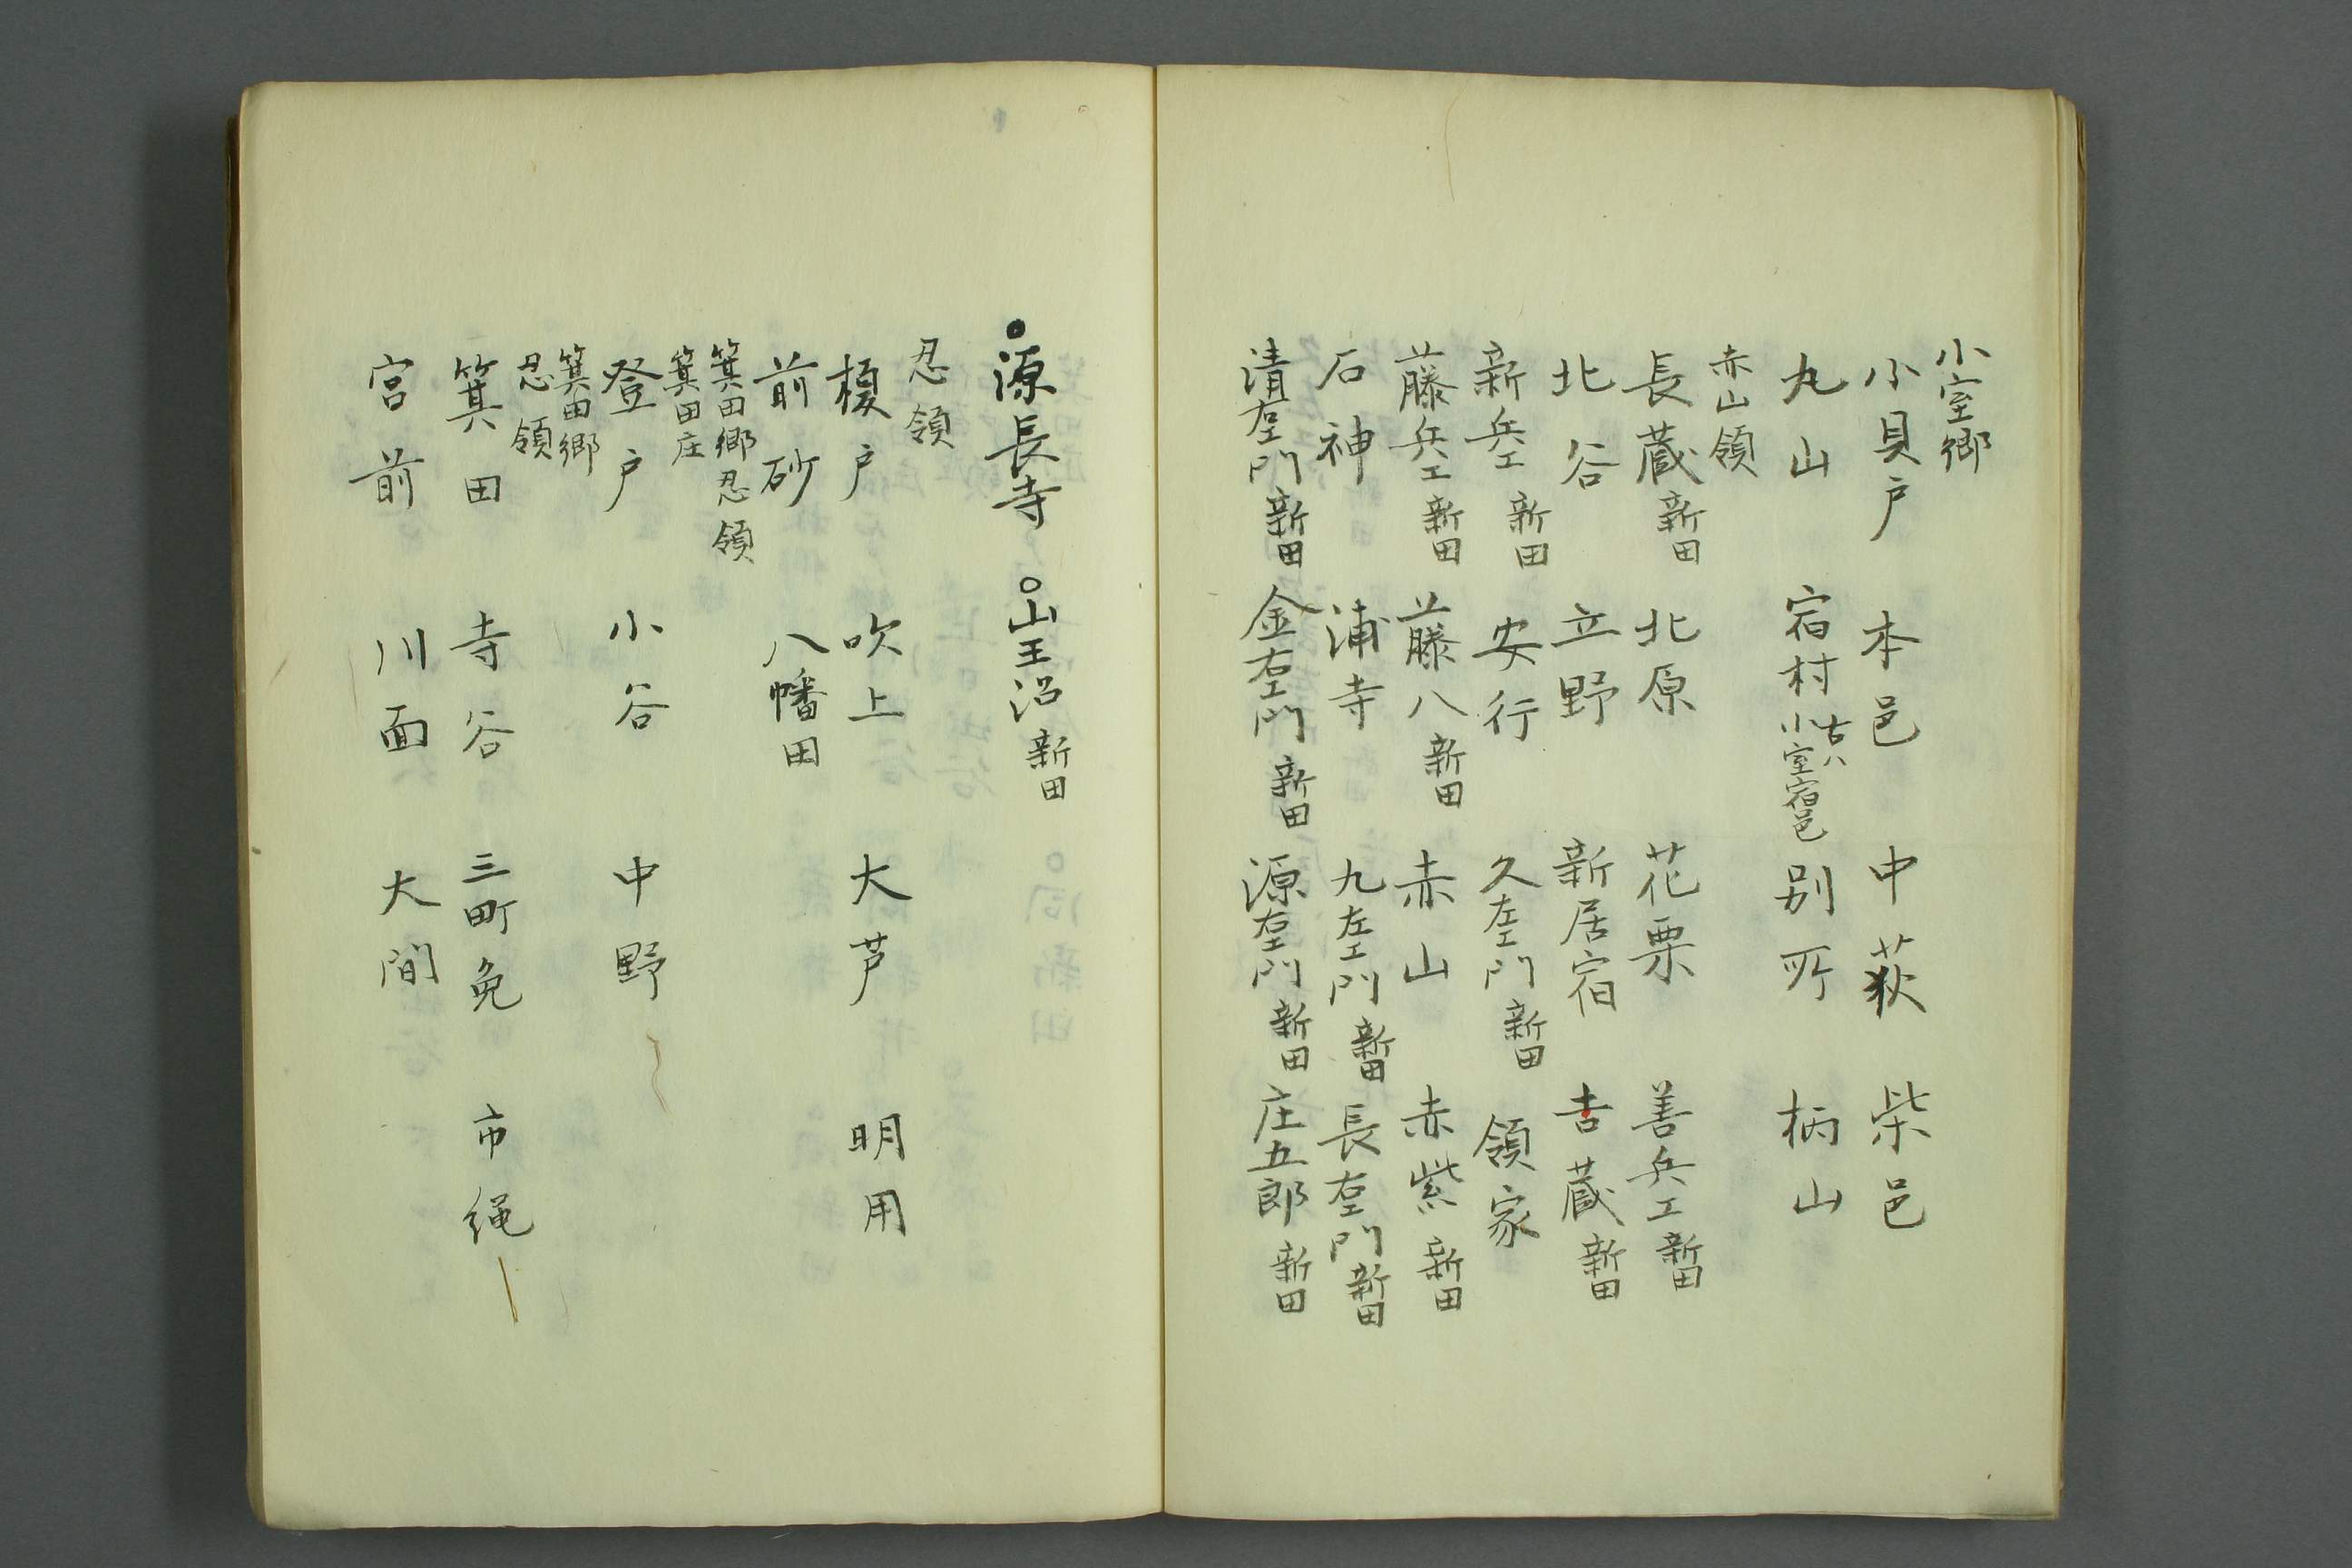 小室郷
小貝戸 本邑 中荻 柴邑
丸山 宿村 古ハ小室宿邑 別所 柄山
赤山領
長蔵新田 北原 花栗 善兵エ新田
北谷 立野 新居宿 吉蔵新田
新兵エ新田 安行 久左エ門新田 領家
藤兵エ新田 藤八新田 赤山 赤紫新田
石神 浦寺 九左エ門新田 長右エ門新田
清右エ門新田 金右エ門新田 源右エ門新田 庄五郎新田
○源長寺 ○山王沼新田
忍領
榎戸 吹上 大芦 明用
前砂 八幡田
箕田郷忍領
箕田庄
登戸 小谷 中野
箕田郷
忍領
箕田 寺谷 三町免 市縄
宮前 川面 大間